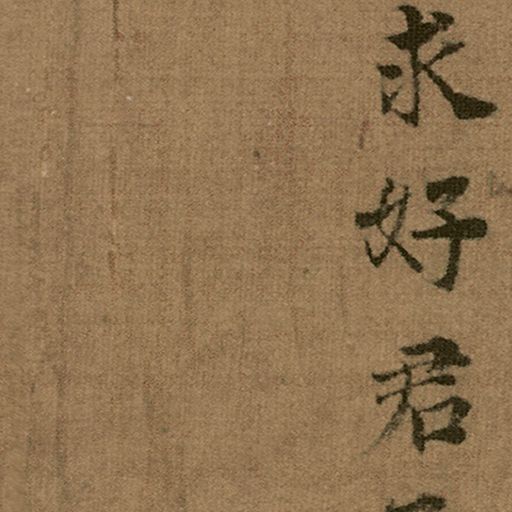 求好君